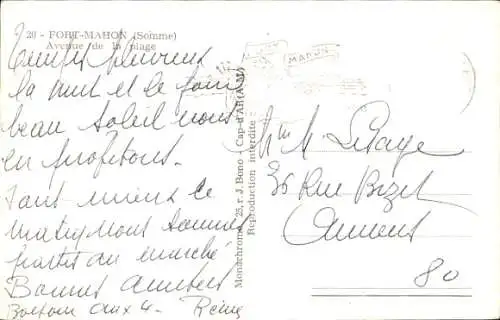 20 - FORT-MAHON (Somme)
Avenue de la plage
Temps pluvieux
la nuit et le jour
beau soleil nous
en profitons.
Tant mieux ce
matin nous sommes
partis au marché
Bonnes amitiés
aux 4. Reine
MAHON
Monochrome, 25, r. J. Bono - Cap-d'Ail (A.-M.)
Reproduction interdite
Mme M Lepage
36 Rue Bizet
Amiens
80